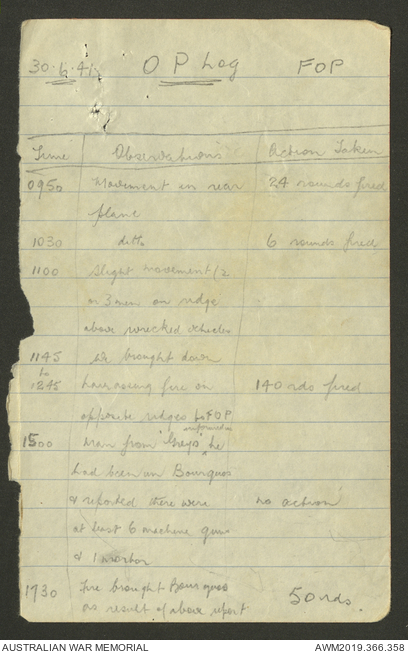 30.6.41. O P Log FOP
Time Observations Action Taken
0950 Movement in rear 24 rounds fired
plane
1030 ditto 6 rounds fired
1100 slight movement (2
or 3 men on ridge
above wrecked vehicles
1145 brought down
to
1245 harassing fire on 140 rds fired
opposite ridges to FOP
information
1500 Man from "Greys" he
had been in Bourquos
& reported there were no action
at least 6 machine guns
& 1 mortar
1730 Fire brought Bourquos
as result of above report 50 rds.
AUSTRALIAN WAR MEMORIAL AWM2019.366.358